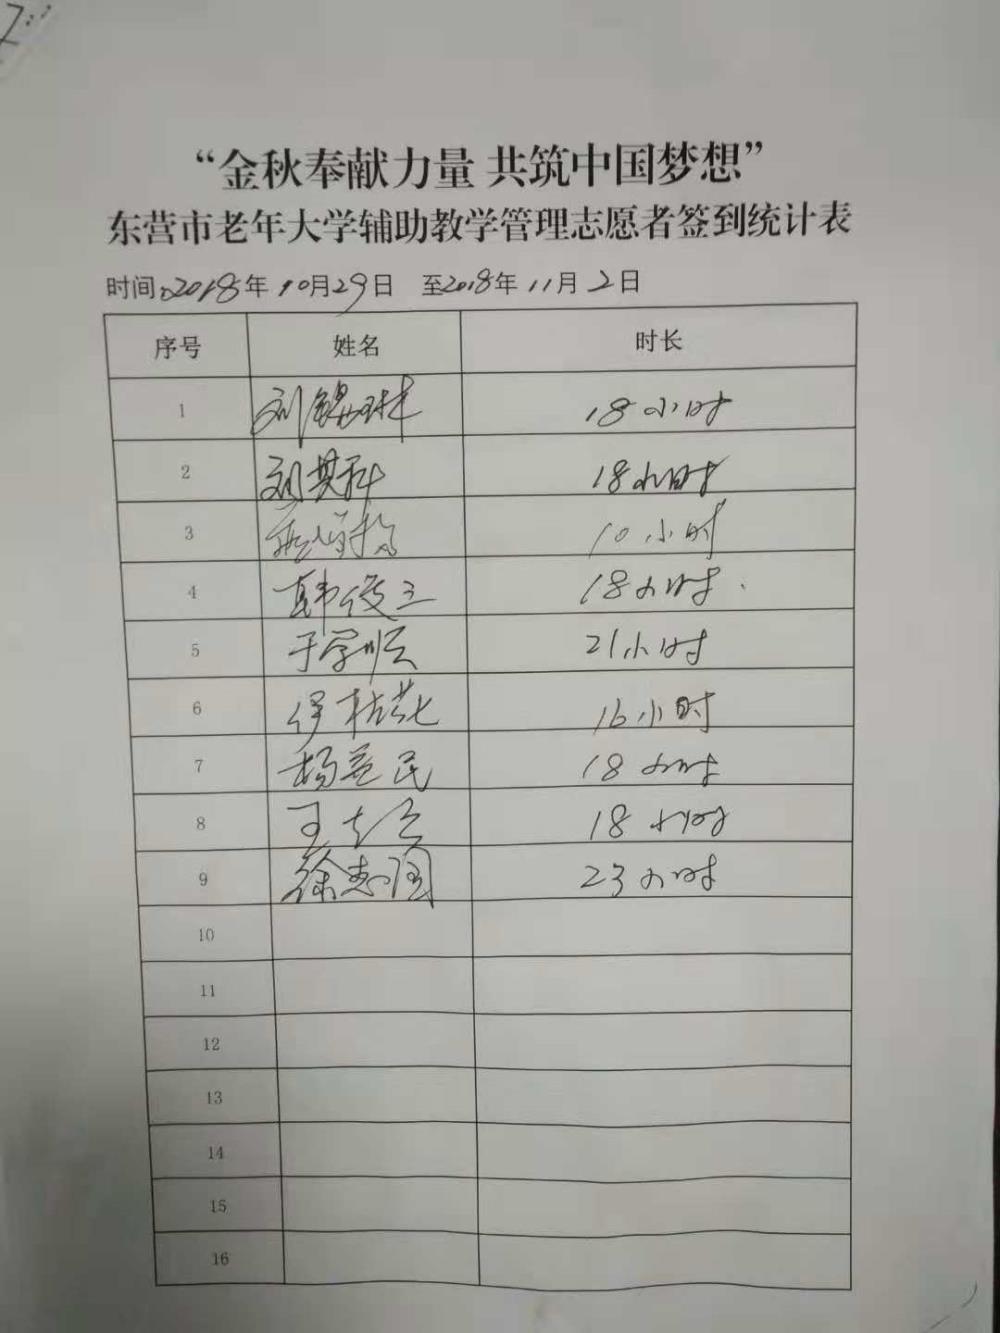 “金秋奉献力量 共筑中国梦想”
东营市老年大学辅助教学管理志愿者签到统计表
时间:2018年10月29日 至2018年11月2日
序号 姓名 时长
1 刘锡琳 18小时
2 刘其科 18小时
3 10小时
4 韩俊三 18小时
5 于学顺 21小时
6 伊桂花 16小时
7 杨益民 18小时
8 王 18小时
9 徐志国 23小时
10
11
12
13
14
15
16